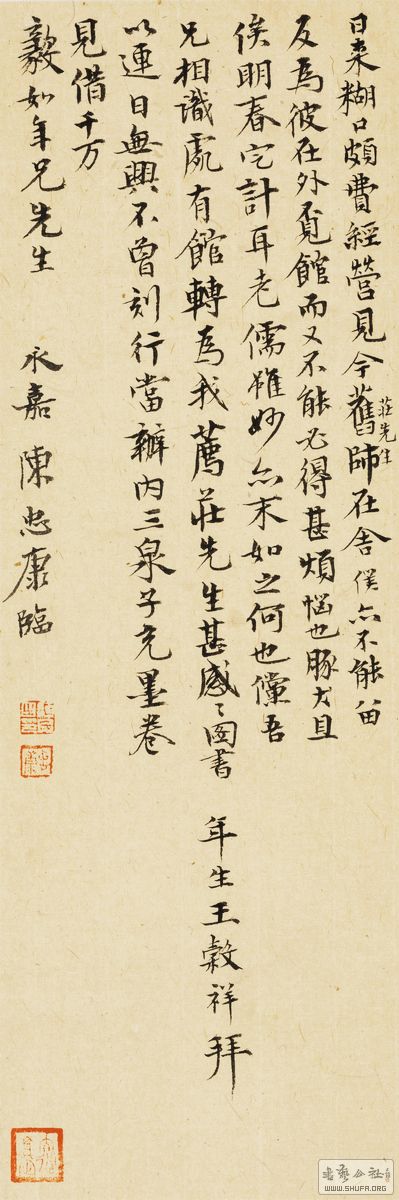 日來糊口頗費經營見今舊師莊先生在舍僕亦不能留
反爲彼在外覓館而又不能必得甚煩惱也豚犬且
俟明春定計耳老儒雖妙亦末如之何也儻吾
兄相識處有館轉爲我薦莊先生甚感〻圖書
年生王穀祥拜
以連日無興不曾刻行當辦內三泉子充墨卷
見借千万
毅如年兄先生
永嘉陳忠康臨
WWW.SHUFA.ORG